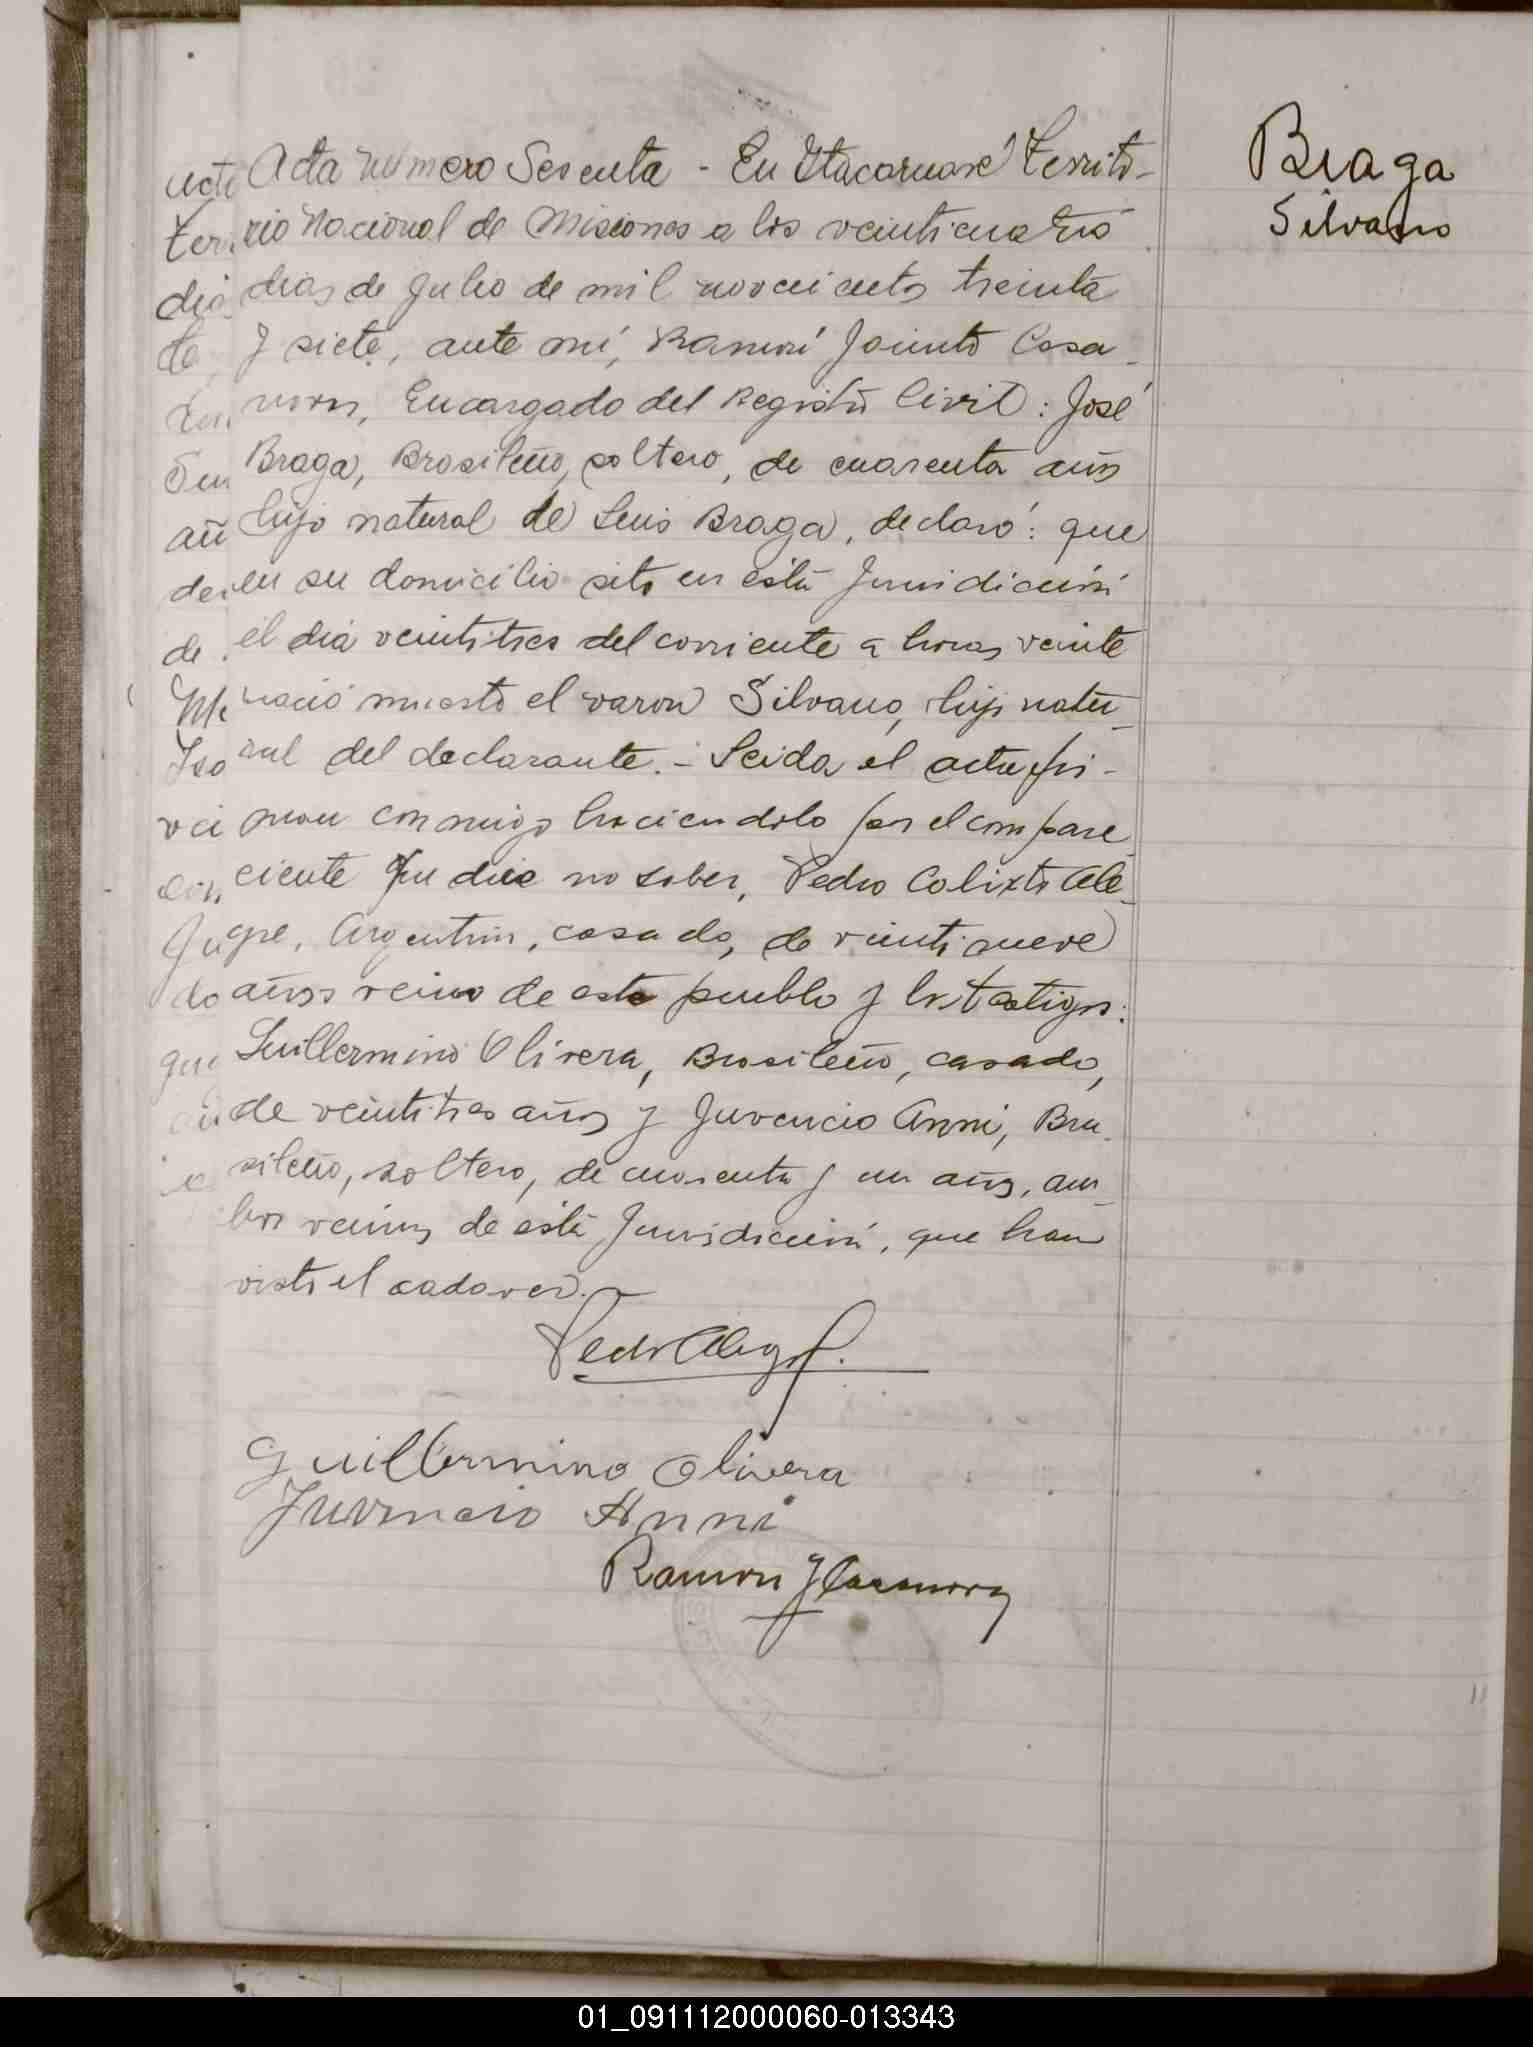 Acta número Sesenta - En Itacaruaré Territo-
rio Nacional de Misiones a los veinticuatro
dias de Julio de mil novecientos treinta
y siete, ante mí, Ramón Jacinto Casa-
nova, Encargado del Registro Civil: José
Braga, Brasileño, soltero, de cuarenta años
hijo natural de Luis Braga, declaró: que
en su domicilio sito en esta Jurisdicción
el dia veintitres del corriente a horas veinte
nació muerto el varon Silvano, hijo natu-
ral del declarante. - Leida el acta fir-
maron conmigo haciendolo por el compare-
ciente que dice no saber, Pedro Calixto Ale-
gre, Argentino, casado, de veintinueve
años vecino de este pueblo y los testigos:
Guillermino Olivera, Brasileño, casado,
de veintitres años y Juvencio Anni, Bra-
sileño, soltero, de cuarenta y un años, am-
bos vecinos de esta Jurisdicción, que han
visto el cadaver. -
Pedro Alegre.
Guillermino Olivera
Juvencio Anni
Ramon J Casanova
Braga
Silvano
01_091112000060-013343